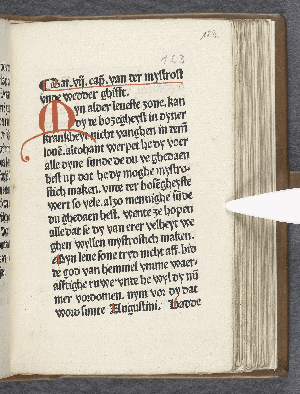 123
Dat. vij. cap. van der mystrost
vnde wedder ghifft.
Myn alder leueste sone. kan
dy de bozegheyst in dyner
kranckheyt nicht vanghen in dem
louē. altohant werpet he dy voer
alle dyne sunde de du ye ghedaen
hest up dat he dy moghe mystro-
stich maken. vnte der bosegheyste
wert so vele. alzo mennighe sūde
du ghedaen hest. wente ze hopen
alle dat se dy van erer velheyt we
ghen wyllen mystrostich maken.
Myn leue sone tryd nicht aff. bid
de god van hemmel vmme waer-
afftighe ruwe vnte he wyl dy nū
mer vordomen. nym vor dy dat
word sunte Augustini. Hadde